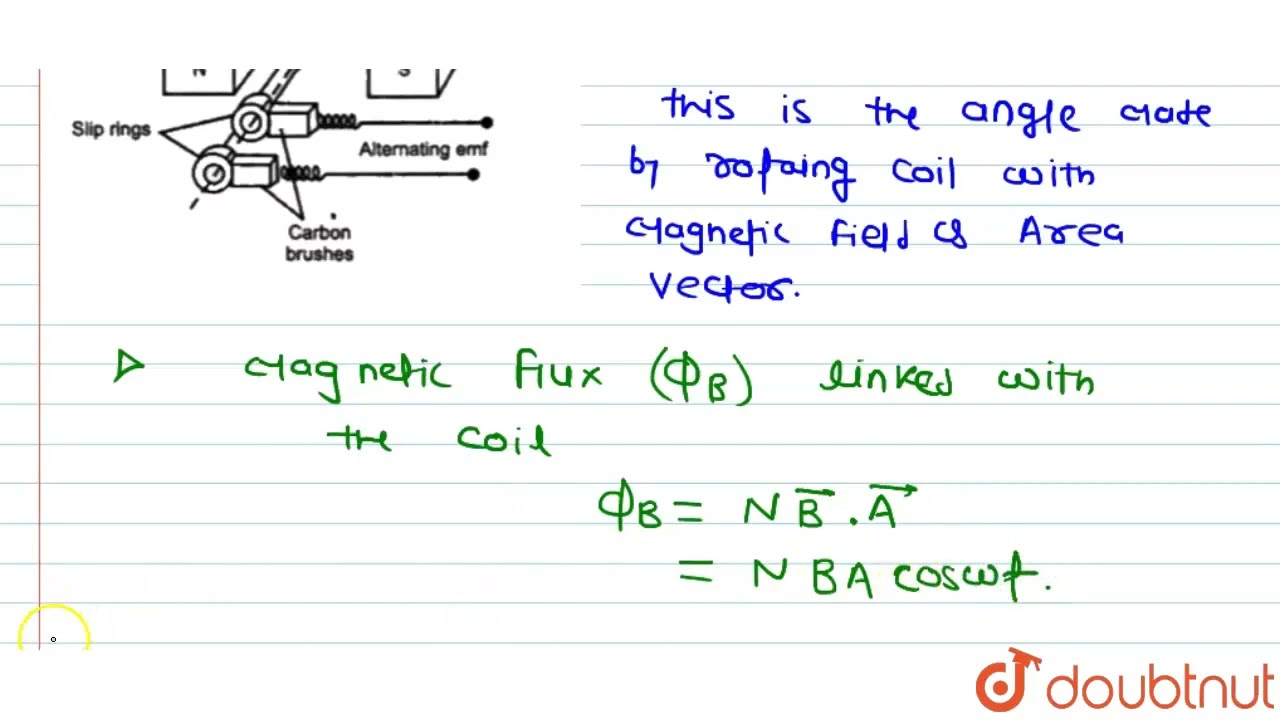 N
S
Slip rings
Alternating emf
Carbon
brushes
this is the angle made
by rotaing coil with
magnetic field & Area
vector.
Magnetic flux (ΦB) linked with
the coil
ΦB = N B⃗ . A⃗
= N BA cosωt.
doubtnut